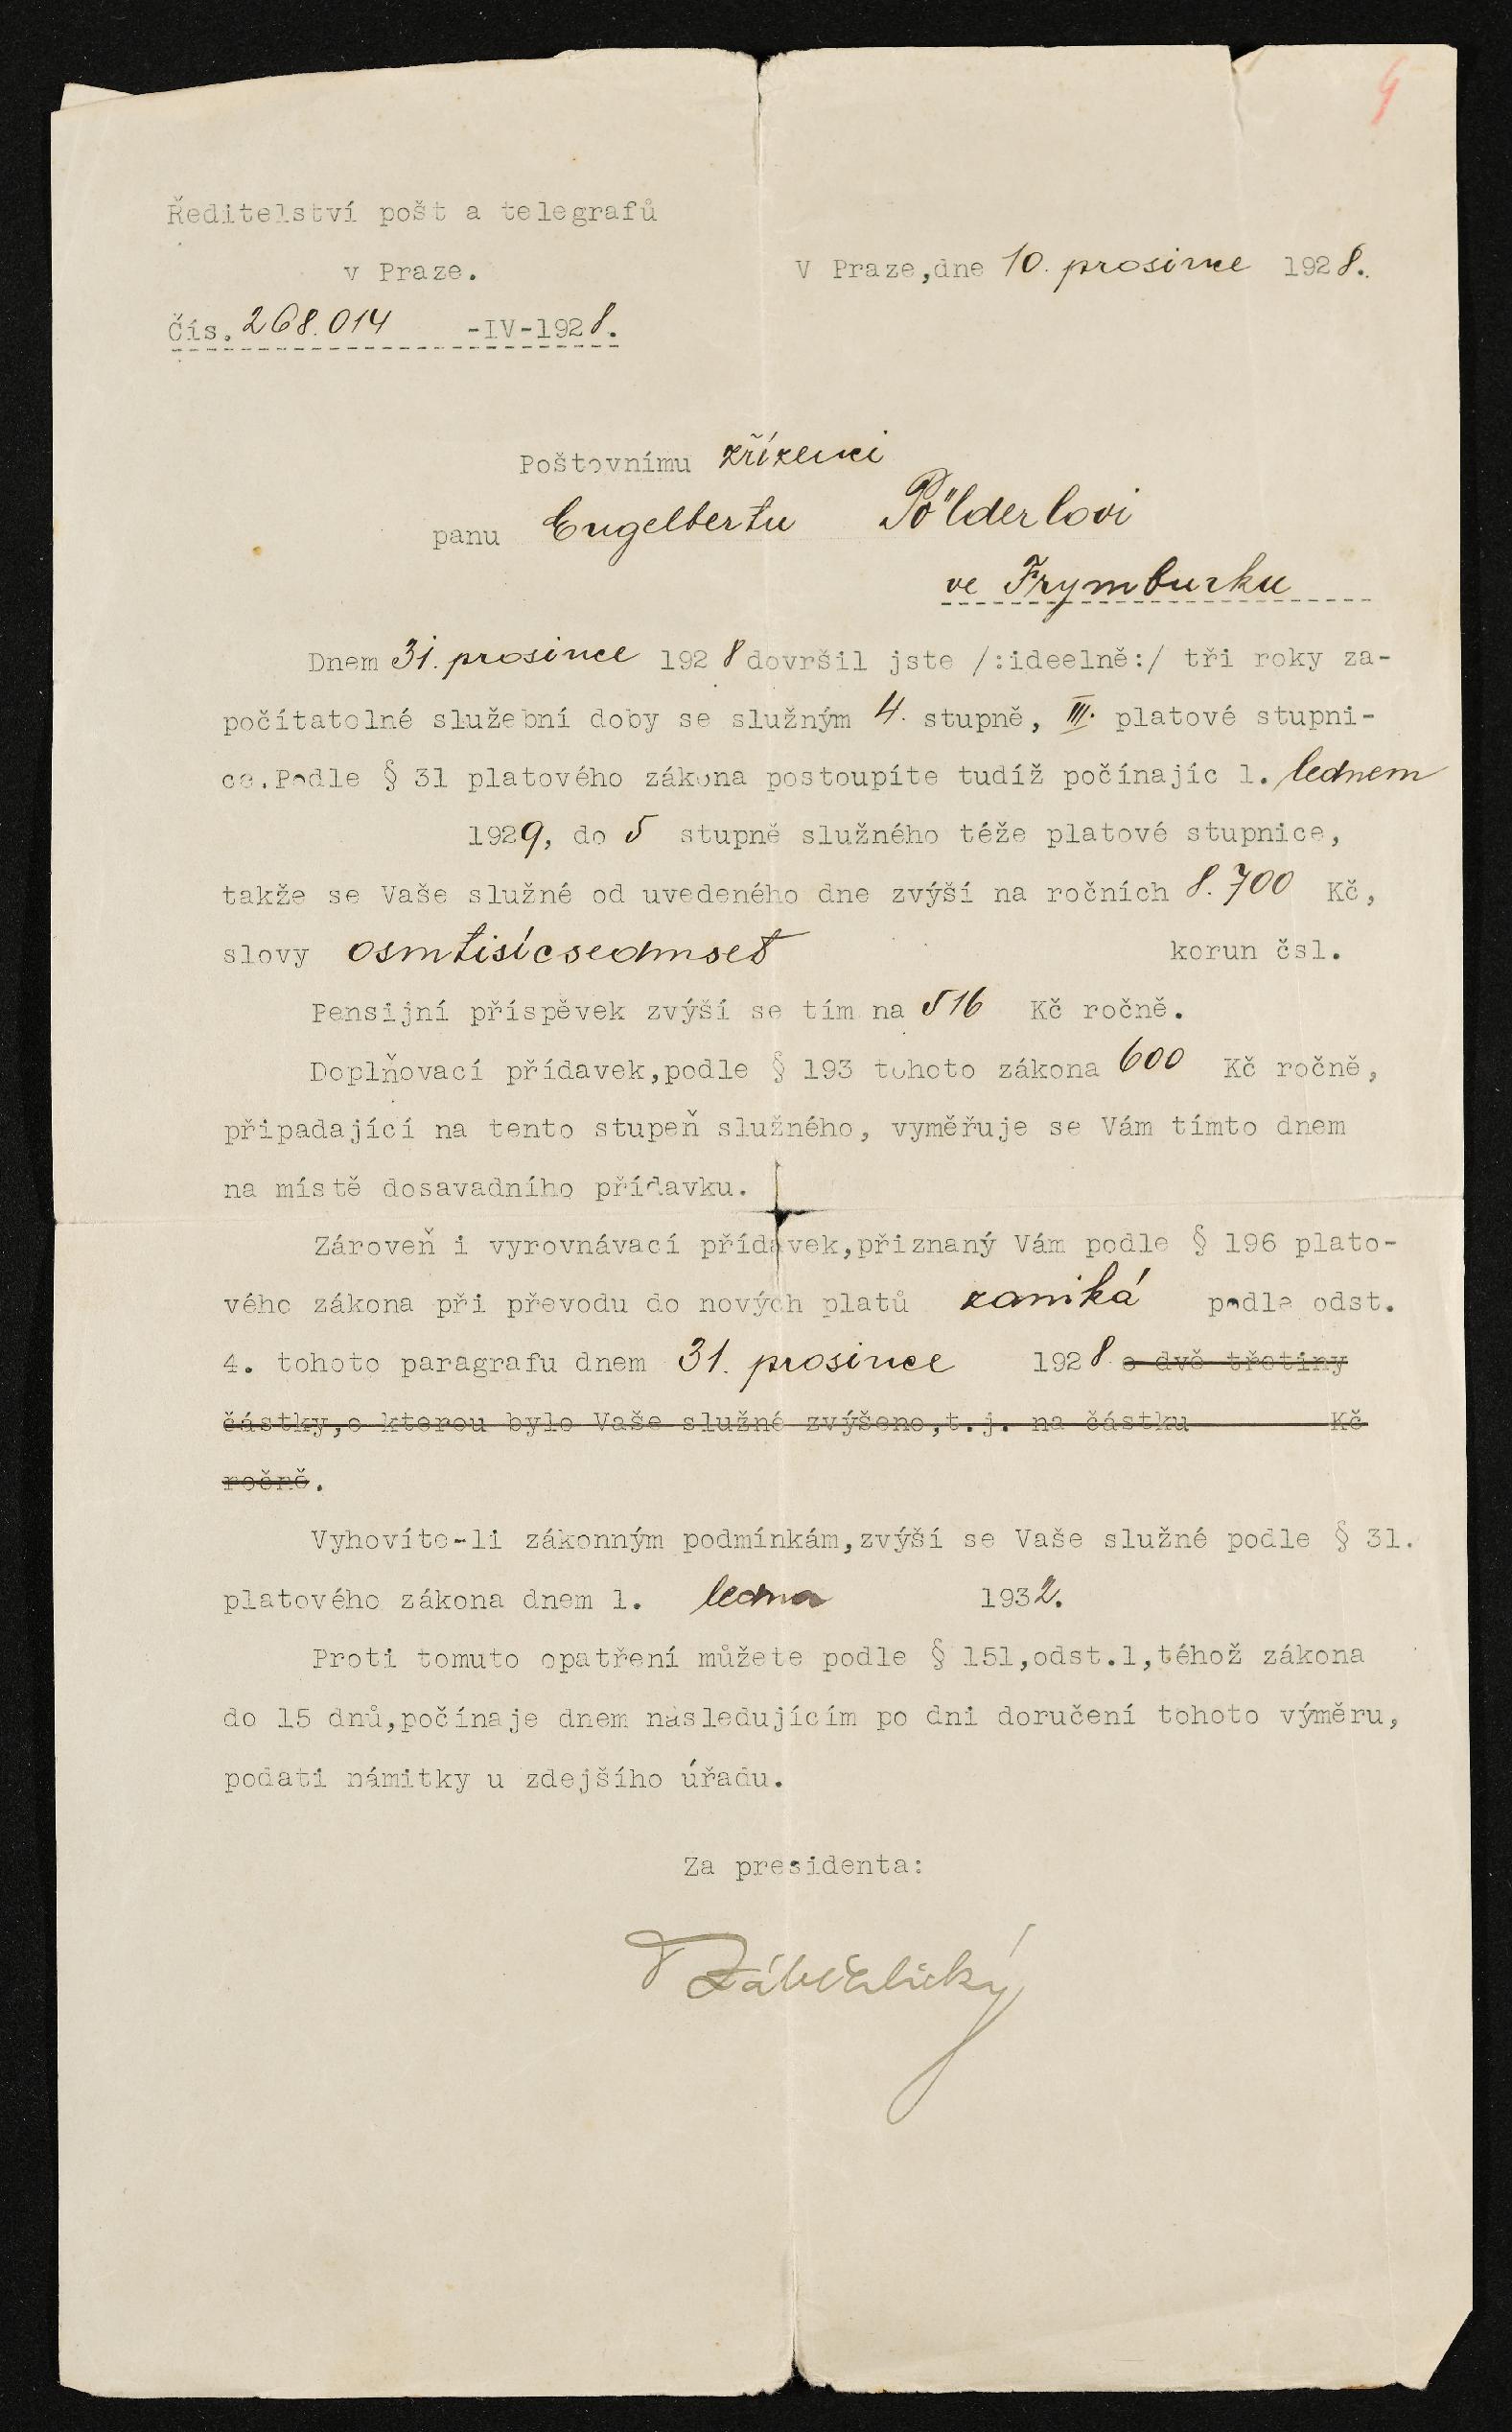 9
Ředitelství pošt a telegrafů
v Praze.
V Praze,dne 10. prosince 1928.
Čís. 268.014 -IV-1928.
Poštovnímu zřízenci
panu Engelbertu Pölderlovi
ve Frymburku
Dnem 31. prosince 1928 dovršil jste /:ideelně:/ tři roky za-
počítatelné služební doby se služným 4. stupně, III. platové stupni-
ce.Podle § 31 platového zákona postoupíte tudíž počínajíc 1. lednem
1929, do 5 stupně služného téže platové stupnice,
takže se Vaše služné od uvedeného dne zvýší na ročních 8.700 Kč,
slovy osmtisícsedmset korun čsl.
Pensijní příspěvek zvýší se tím na 516 Kč ročně.
Doplňovací přídavek,podle § 193 tohoto zákona 600 Kč ročně,
připadající na tento stupeň služného, vyměřuje se Vám tímto dnem
na místě dosavadního přídavku.
Zároveň i vyrovnávací přídavek,přiznaný Vám podle § 196 plato-
vého zákona při převodu do nových platů zaniká podle odst.
4. tohoto paragrafu dnem 31. prosince 1928 o dvě třetiny
částky,o kterou bylo Vaše služné zvýšeno,t.j. na částku Kč
ročně.
Vyhovíte-li zákonným podmínkám,zvýší se Vaše služné podle § 31.
platového zákona dnem 1. ledna 1932.
Proti tomuto opatření můžete podle § 151,odst.1,téhož zákona
do 15 dnů,počínaje dnem následujícím po dni doručení tohoto výměru,
podati námitky u zdejšího úřadu.
Za presidenta: